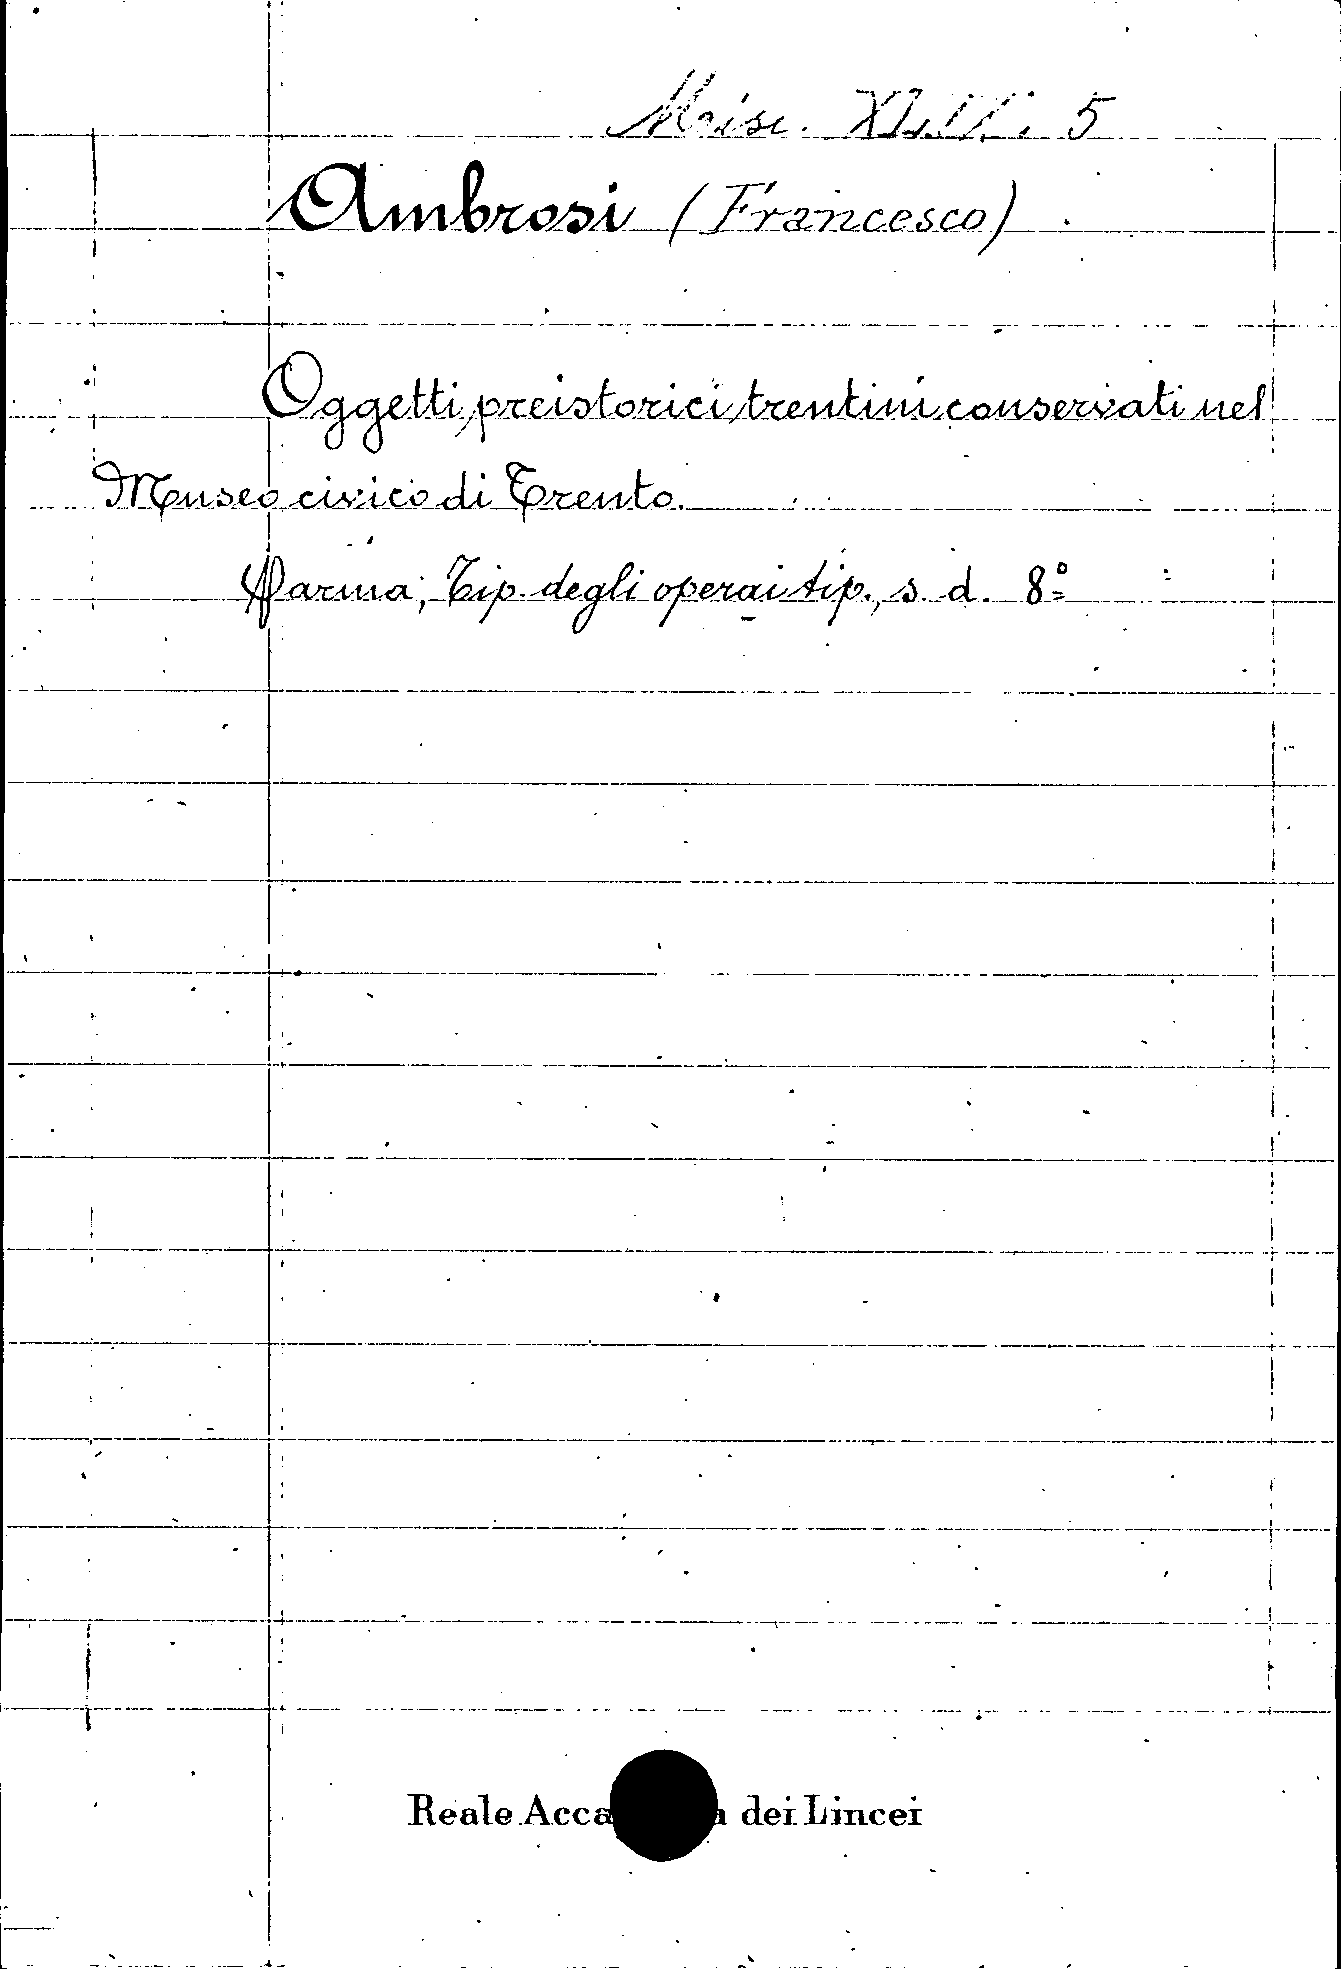 5
Ambrosi (Francesco)
Oggetti preistorici trentini conservati nel
Museo civico di Trento.
Parma, Tip. degli operai tip., s. d. 8º
Reale Acca dei Lincei